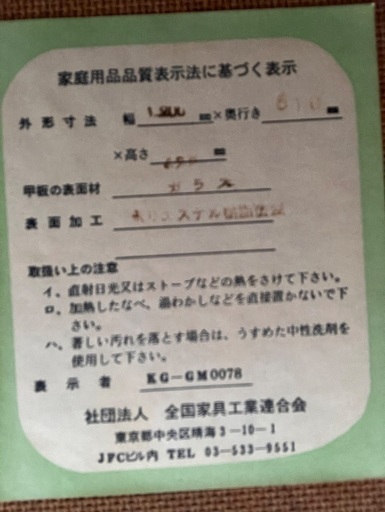 家庭用品品質表示法に基づく表示
外形寸法 幅 1,200 ㎜×奥行き 610 ㎜
×高さ ㎜
甲板の表面材 ガラス
表面加工 ポリエステル樹脂塗装
取扱い上の注意
イ、直射日光又はストーブなどの熱をさけて下さい。
ロ、加熱したなべ、湯わかしなどを直接置かないで下
さい。
ハ、著しい汚れを落とす場合は、うすめた中性洗剤を
使用して下さい。
表示者 KG-GM0078
社団法人 全国家具工業連合会
東京都中央区晴海3-10-1
JFCビル内 TEL 03-533-9551